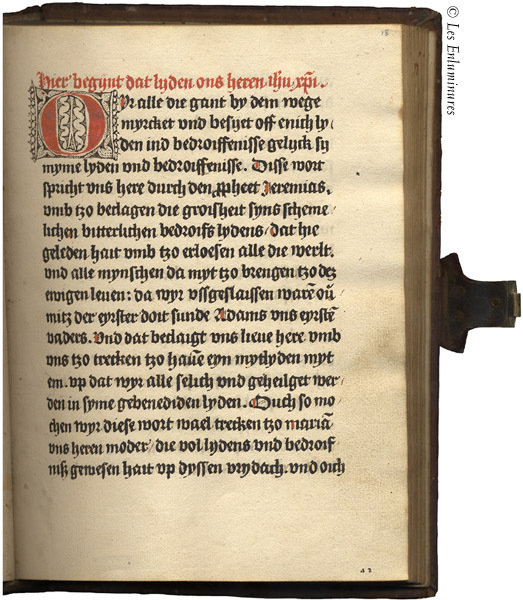 © Les Enluminures
18
Hier begynt dat lyden ons heren ihu xpi.
OYr alle die gant by dem wege
myrcket vnd besyet off enich ly/
den ind bedroiffenisse gelyck sy
myme lyden vnd bedroiffenisse. Disse wort
spricht vns here durch den ꝓpheet Jeremias.
vmb tzo beclagen die groisheit syns scheme/
lichen bitterlichen bedroifs lydens/ dat hie
geleden hait vmb tzo erloesen alle die werlt.
vnd alle mynschen da myt tzo brengen tzo dez
ewigen leuen: da wyr vssgeslaissen warē oū/
mitz der eyrster doit sunde Adams vns eyrstē
vaders. Vnd dat beclaigt vns lieue here vmb
vns tzo trecken tzo hauē eyn mytlyden myt
em. vp dat wyr alle selich vnd geheilget wer/
den in syme gebenediden lyden. Ouch so mo/
chen wyr diese wort wael trecken tzo mariā
vns heren moder/ die vol lydens vnd bedroif/
niß gewesen hait vp dyssen vrydach. vnd oich
a 2